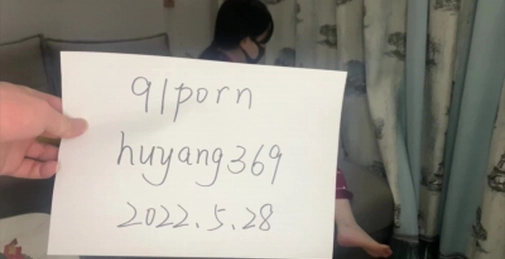 91porn
huyang369
2022.5.28